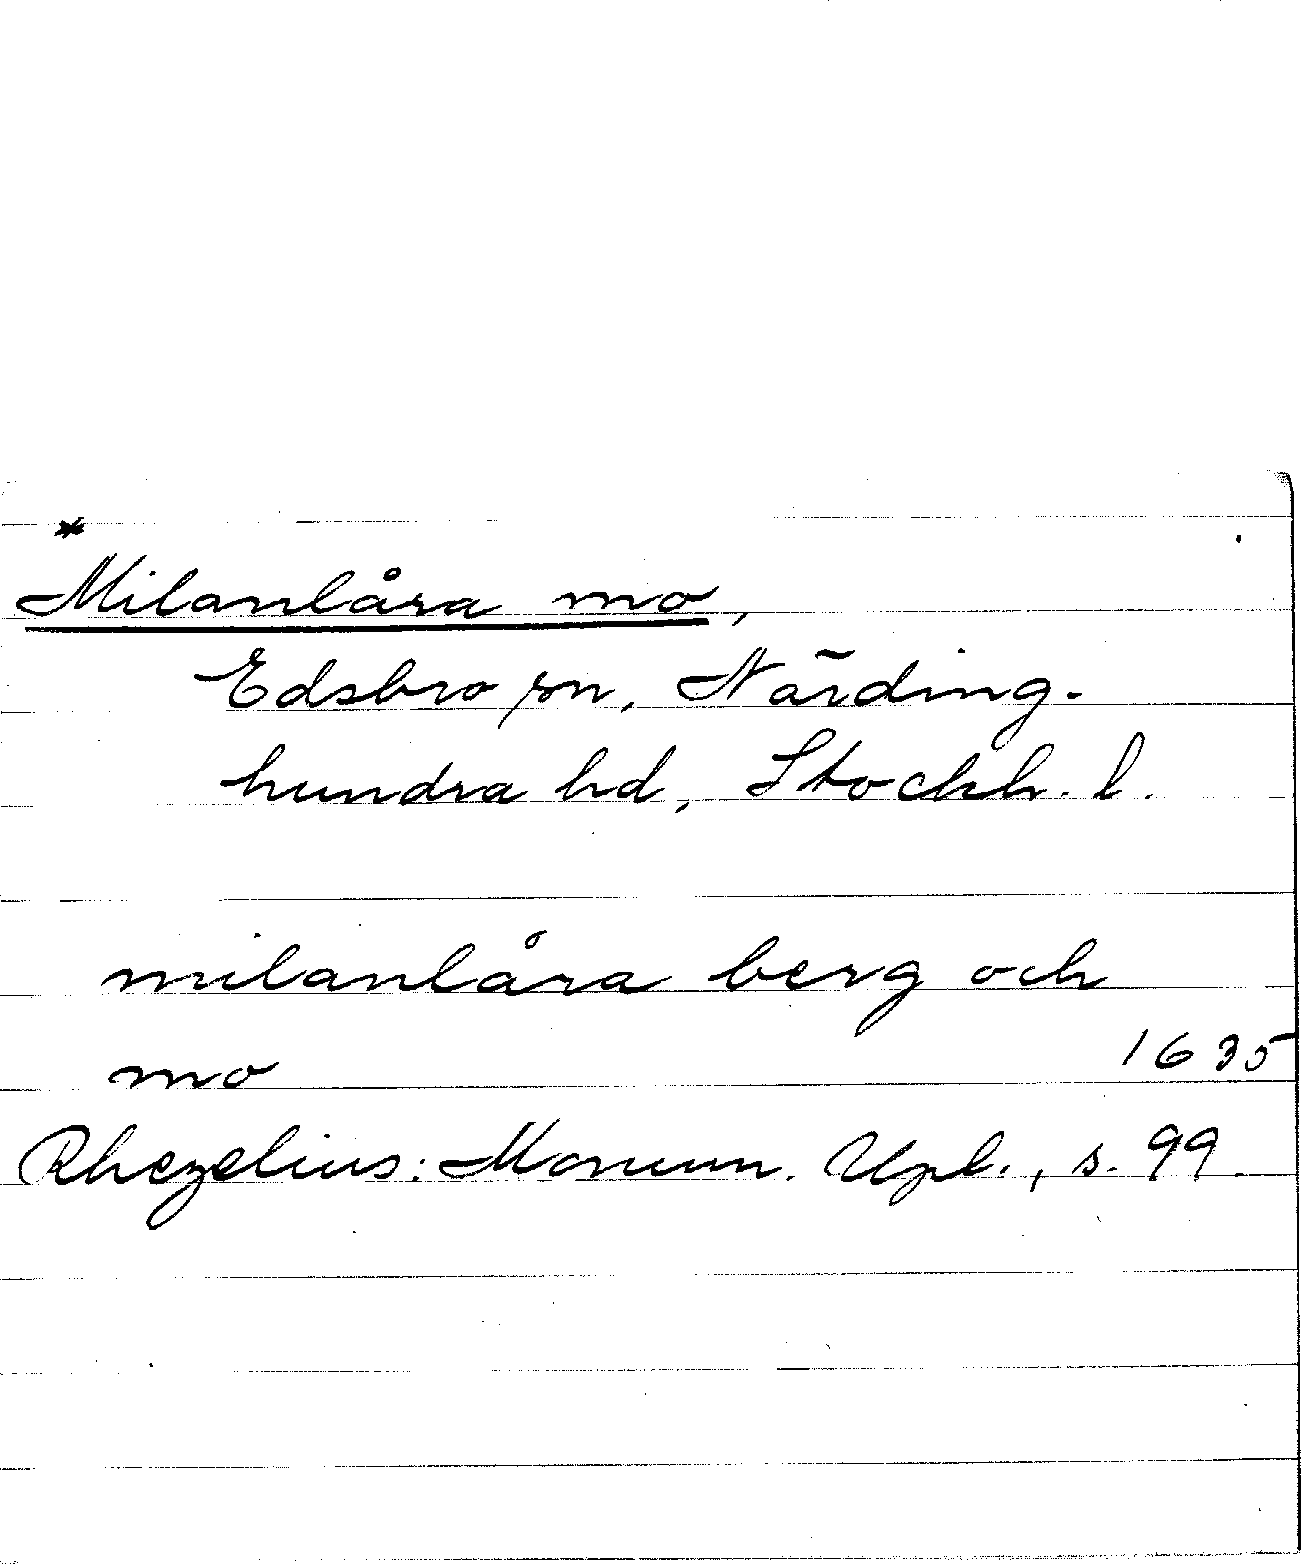 *
Milanlåra mo,
Edsbro sn, Närding-
hundra hd, Stockh. l.
milanlåra berg och
mo 1635
Rhezelius: Monum. Upl., s. 99.